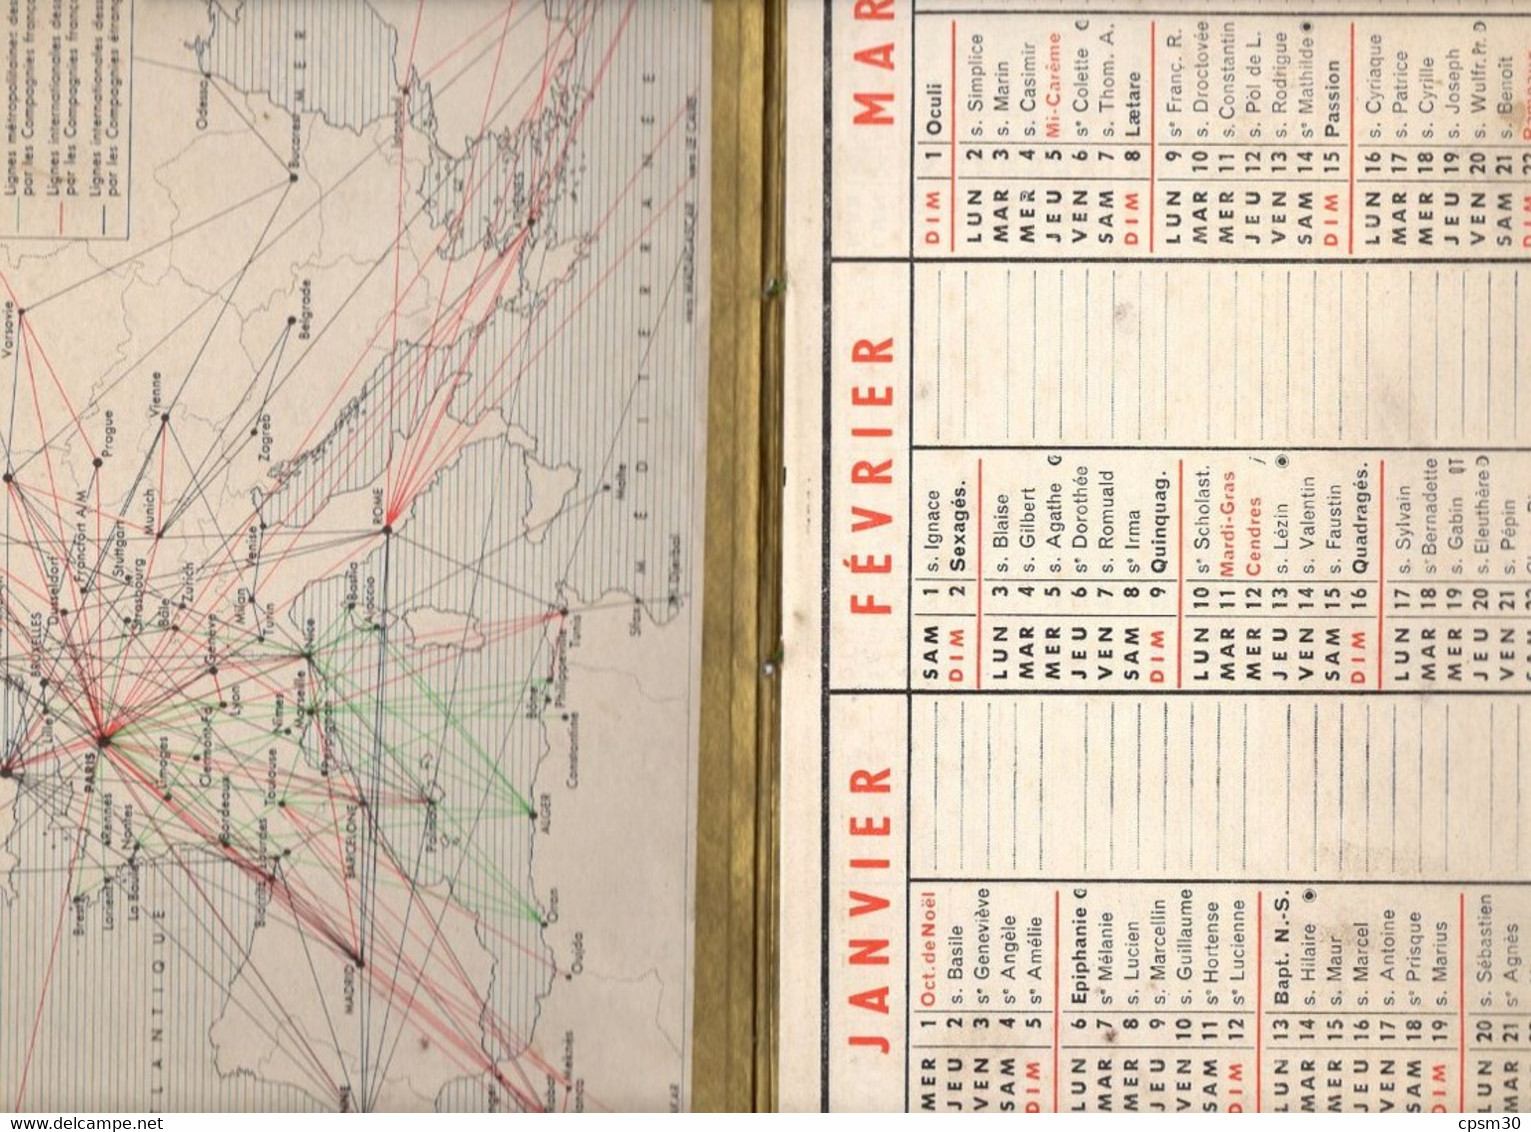 Lignes métropolitaines des
par les Compagnies franç
Lignes internationales des
par les Compagnies franç
Lignes internationales des
par les Compagnies étran
Odessa
MER
Istanbul
Bucarest
ATHÈNES
MÉDITERRANÉE
vers LE CAIRE
vers MADAGASCAR
Varsovie
Belgrade
Vienne
Prague
Zagreb
Munich
Francfort A/M
Stuttgart
Venise
ROME
Malte
Dusseldorf
Strasbourg
Zürich
Bâle
Milan
Turin
Bastia
Ajaccio
Sfax
Djerba
BRUXELLES
Genève
Nice
Tunis
Philippeville
Lille
Lyon
Nîmes
Marseille
Bône
Constantine
PARIS
Limoges
Clermont-Fd
Toulouse
Perpignan
Rennes
Nantes
Bordeaux
Lourdes
BARCELONE
Palma
ALGER
Brest
Lorient
La Baule
Biarritz
Oran
MADRID
Oujda
LANTIQUE
Meknès
Rabat
JANVIER
MER 1 Oct. de Noël
JEU 2 s. Basile
VEN 3 sᵉ Geneviève
SAM 4 sᵉ Angèle
DIM 5 sᵉ Amélie
LUN 6 Epiphanie
MAR 7 sᵉ Mélanie
MER 8 s. Lucien
JEU 9 s. Marcellin
VEN 10 s. Guillaume
SAM 11 sᵉ Hortense
DIM 12 sᵉ Lucienne
LUN 13 Bapt. N.-S.
MAR 14 s. Hilaire
MER 15 s. Maur
JEU 16 s. Marcel
VEN 17 s. Antoine
SAM 18 sᵉ Prisque
DIM 19 s. Marius
LUN 20 s. Sébastien
MAR 21 sᵉ Agnès
FÉVRIER
SAM 1 s. Ignace
DIM 2 Sexagés.
LUN 3 s. Blaise
MAR 4 s. Gilbert
MER 5 s. Agathe
JEU 6 sᵉ Dorothée
VEN 7 s. Romuald
SAM 8 sᵉ Irma
DIM 9 Quinquag.
LUN 10 sᵉ Scholast.
MAR 11 Mardi-Gras
MER 12 Cendres
JEU 13 s. Lézin
VEN 14 s. Valentin
SAM 15 s. Faustin
DIM 16 Quadragés.
LUN 17 s. Sylvain
MAR 18 sᵉ Bernadette
MER 19 s. Gabin QT
JEU 20 s. Eleuthère
VEN 21 s. Pépin
MAR
DIM 1 Oculi
LUN 2 s. Simplice
MAR 3 s. Marin
MER 4 s. Casimir
JEU 5 Mi-Carême
VEN 6 sᵉ Colette
SAM 7 s. Thom. A.
DIM 8 Lætare
LUN 9 sᵉ Franç. R.
MAR 10 s. Droctovée
MER 11 s. Constantin
JEU 12 s. Pol de L.
VEN 13 s. Rodrigue
SAM 14 sᵉ Mathilde
DIM 15 Passion
LUN 16 s. Cyriaque
MAR 17 s. Patrice
MER 18 s. Cyrille
JEU 19 s. Joseph
VEN 20 s. Wulfr. Pr.
SAM 21 s. Benoît
www.delcampe.net
cpsm30